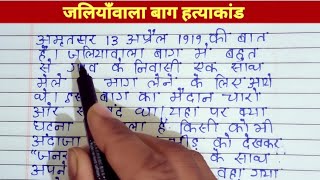 जलियाँवाला बाग हत्याकांड
अमृतसर 13 अप्रैल 1919 की बात
है। जलियावाला बाग में बहुत
से के निवासी एक साथ
मेले में भाग लेने के लिए आये
थे। इस बाग का मैदान चारो
और से बंद था। यहा पर क्या
घटना है किसी को भी
अंदाजा देखकर
"जनर के साथ
अपने वहा गया